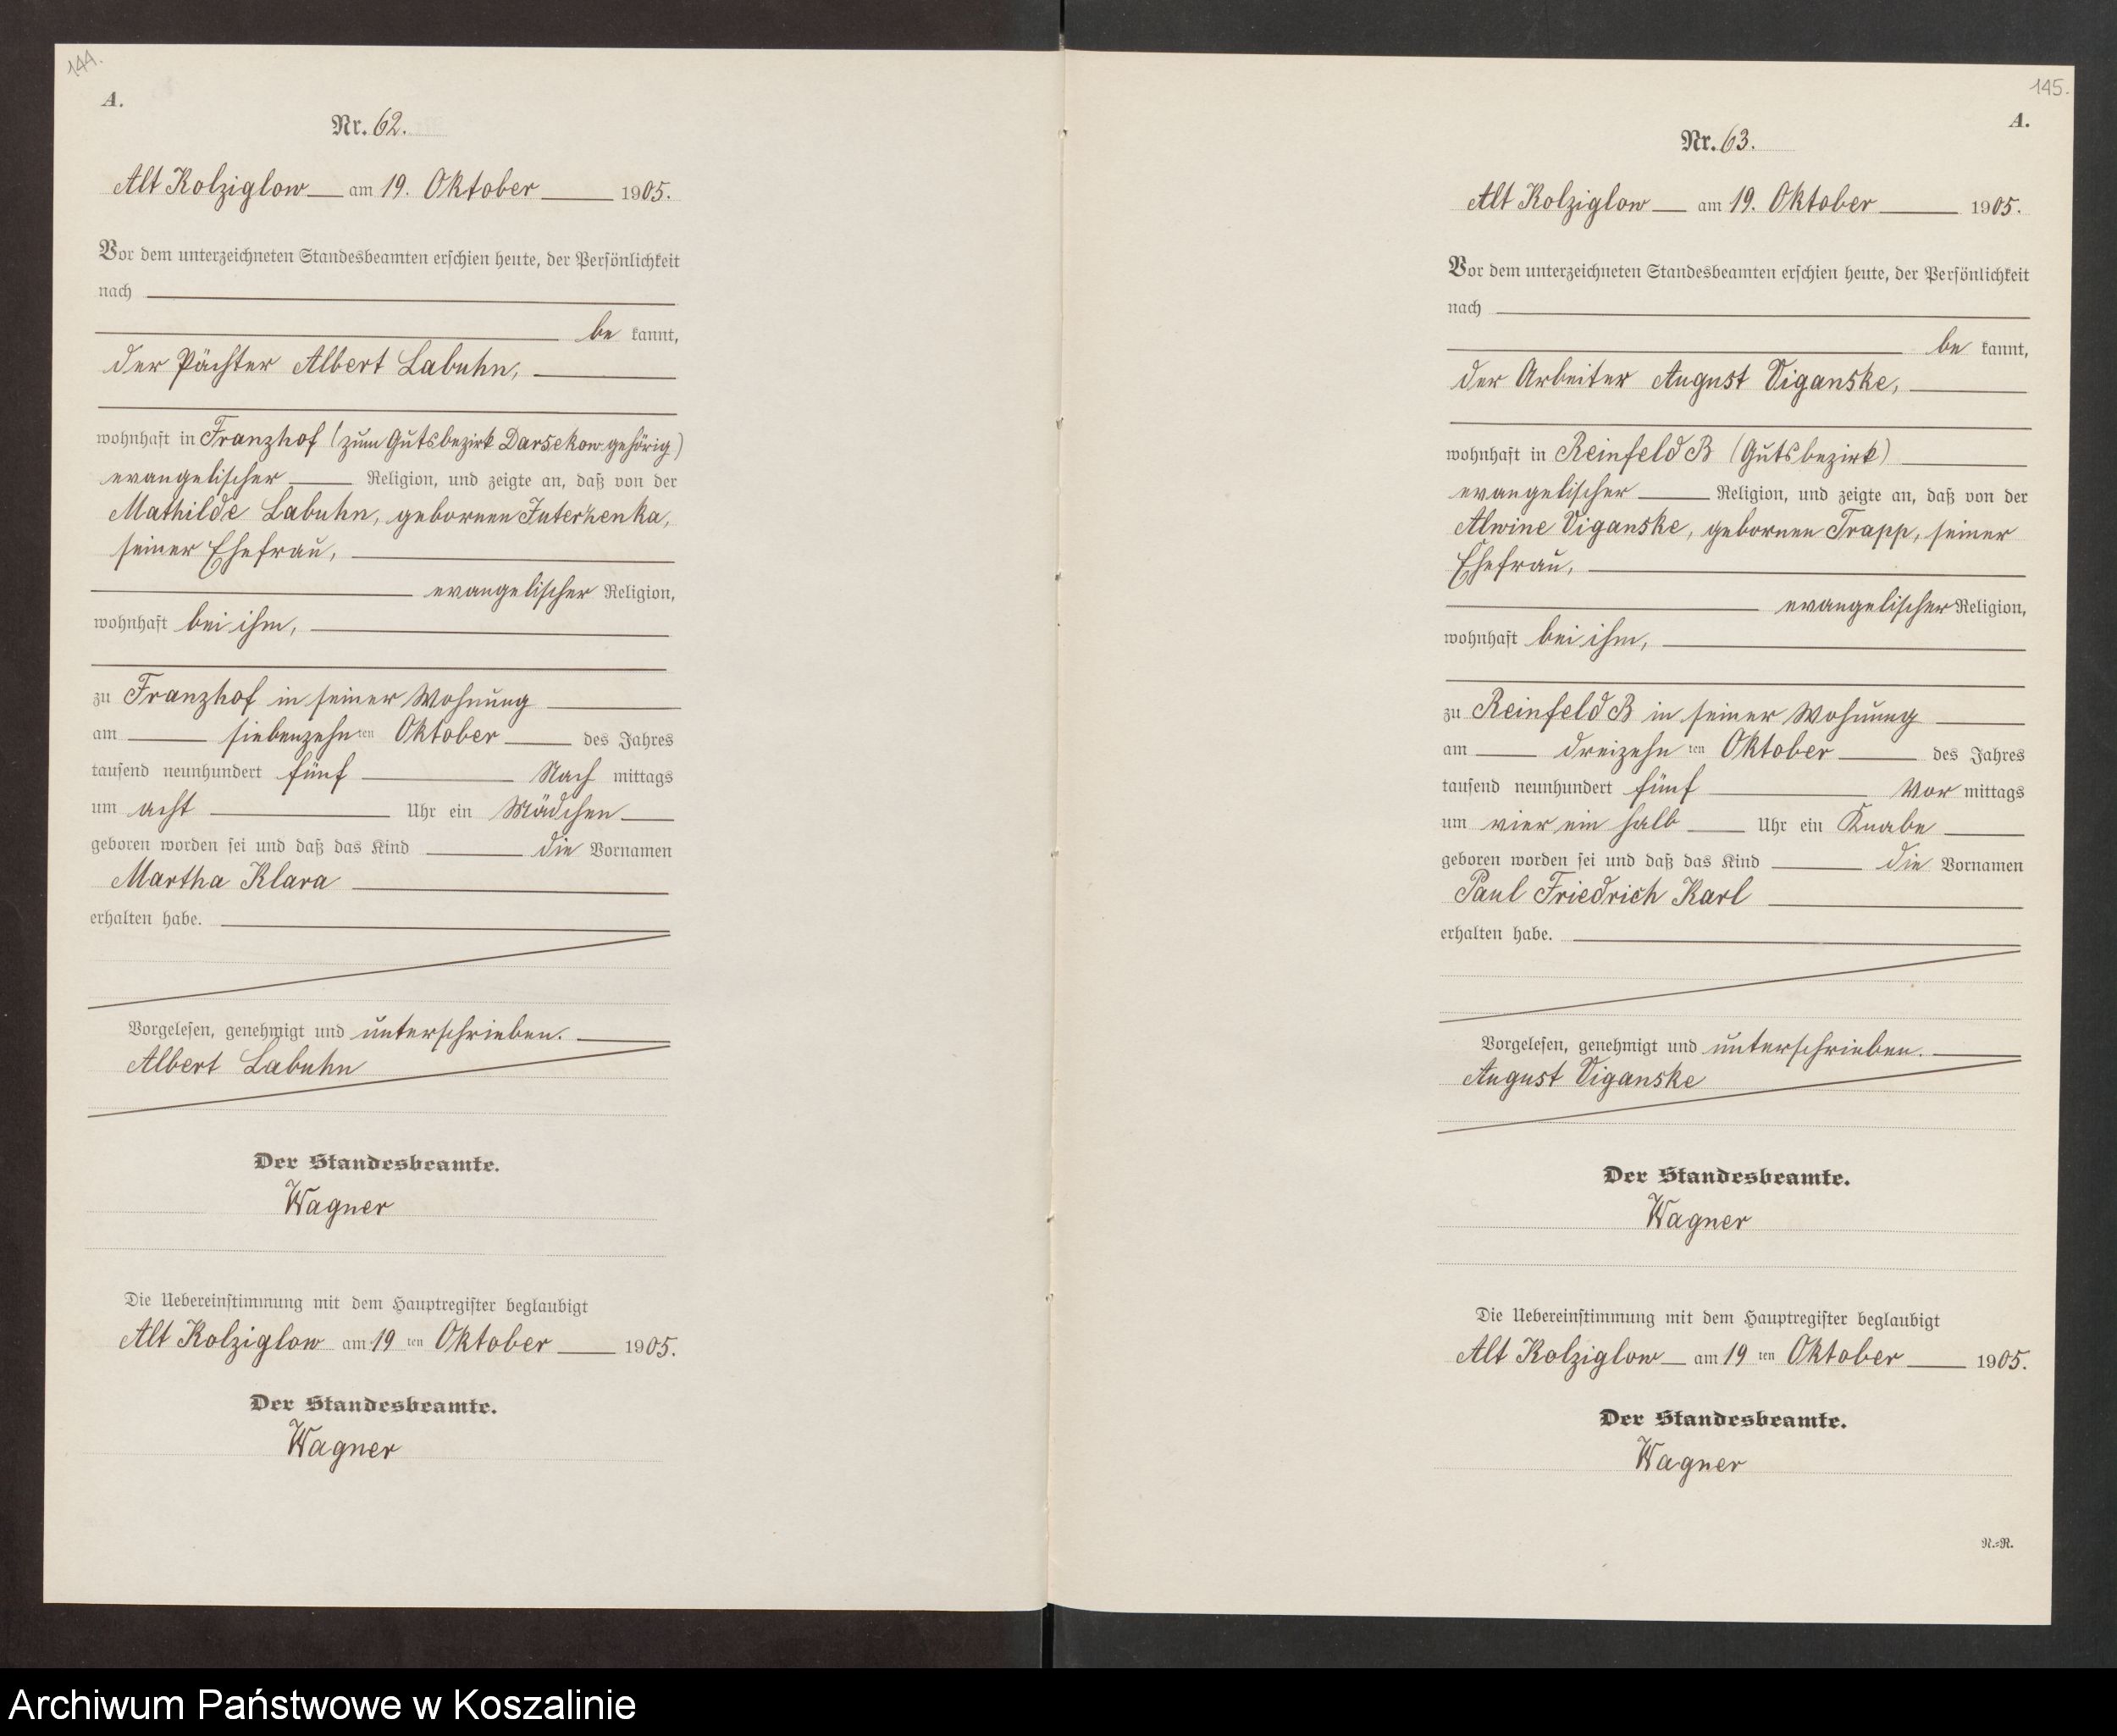 144.
A.
Nr. 62.
Alt Kolziglow am 19. Oktober 1905.
Vor dem unterzeichneten Standesbeamten erschien heute, der Persönlichkeit
nach
be kannt,
der Pächter Albert Labuhn,
wohnhaft in Franzhof (zum Gutsbezirk Darsekow gehörig)
evangelischer Religion, und zeigte an, daß von der
Mathilde Labuhn, gebornen Juterzenka,
seiner Ehefrau,
evangelischer Religion,
wohnhaft bei ihm,
zu Franzhof in seiner Wohnung
am siebenzehn ten Oktober des Jahres
tausend neunhundert fünf Nach mittags
um acht Uhr ein Mädchen
geboren worden sei und daß das Kind die Vornamen
Martha Klara
erhalten habe.
Vorgelesen, genehmigt und unterschrieben.
Albert Labuhn
Der Standesbeamte.
Wagner
Die Uebereinstimmung mit dem Hauptregister beglaubigt
Alt Kolziglow am 19 ten Oktober 1905.
Der Standesbeamte.
Wagner
145.
A.
Nr. 63.
Alt Kolziglow am 19. Oktober 1905.
Vor dem unterzeichneten Standesbeamten erschien heute, der Persönlichkeit
nach
be kannt,
der Arbeiter August Viganske,
wohnhaft in Reinfeld B (Gutsbezirk)
evangelischer Religion, und zeigte an, daß von der
Alwine Viganske, gebornen Trapp, seiner
Ehefrau,
evangelischer Religion,
wohnhaft bei ihm,
zu Reinfeld B in seiner Wohnung
am dreizehn ten Oktober des Jahres
tausend neunhundert fünf Vor mittags
um vier ein halb Uhr ein Knabe
geboren worden sei und daß das Kind die Vornamen
Paul Friedrich Karl
erhalten habe.
Vorgelesen, genehmigt und unterschrieben.
August Viganske
Der Standesbeamte.
Wagner
Die Uebereinstimmung mit dem Hauptregister beglaubigt
Alt Kolziglow am 19 ten Oktober 1905.
Der Standesbeamte.
Wagner
N.=R.
Archiwum Państwowe w Koszalinie